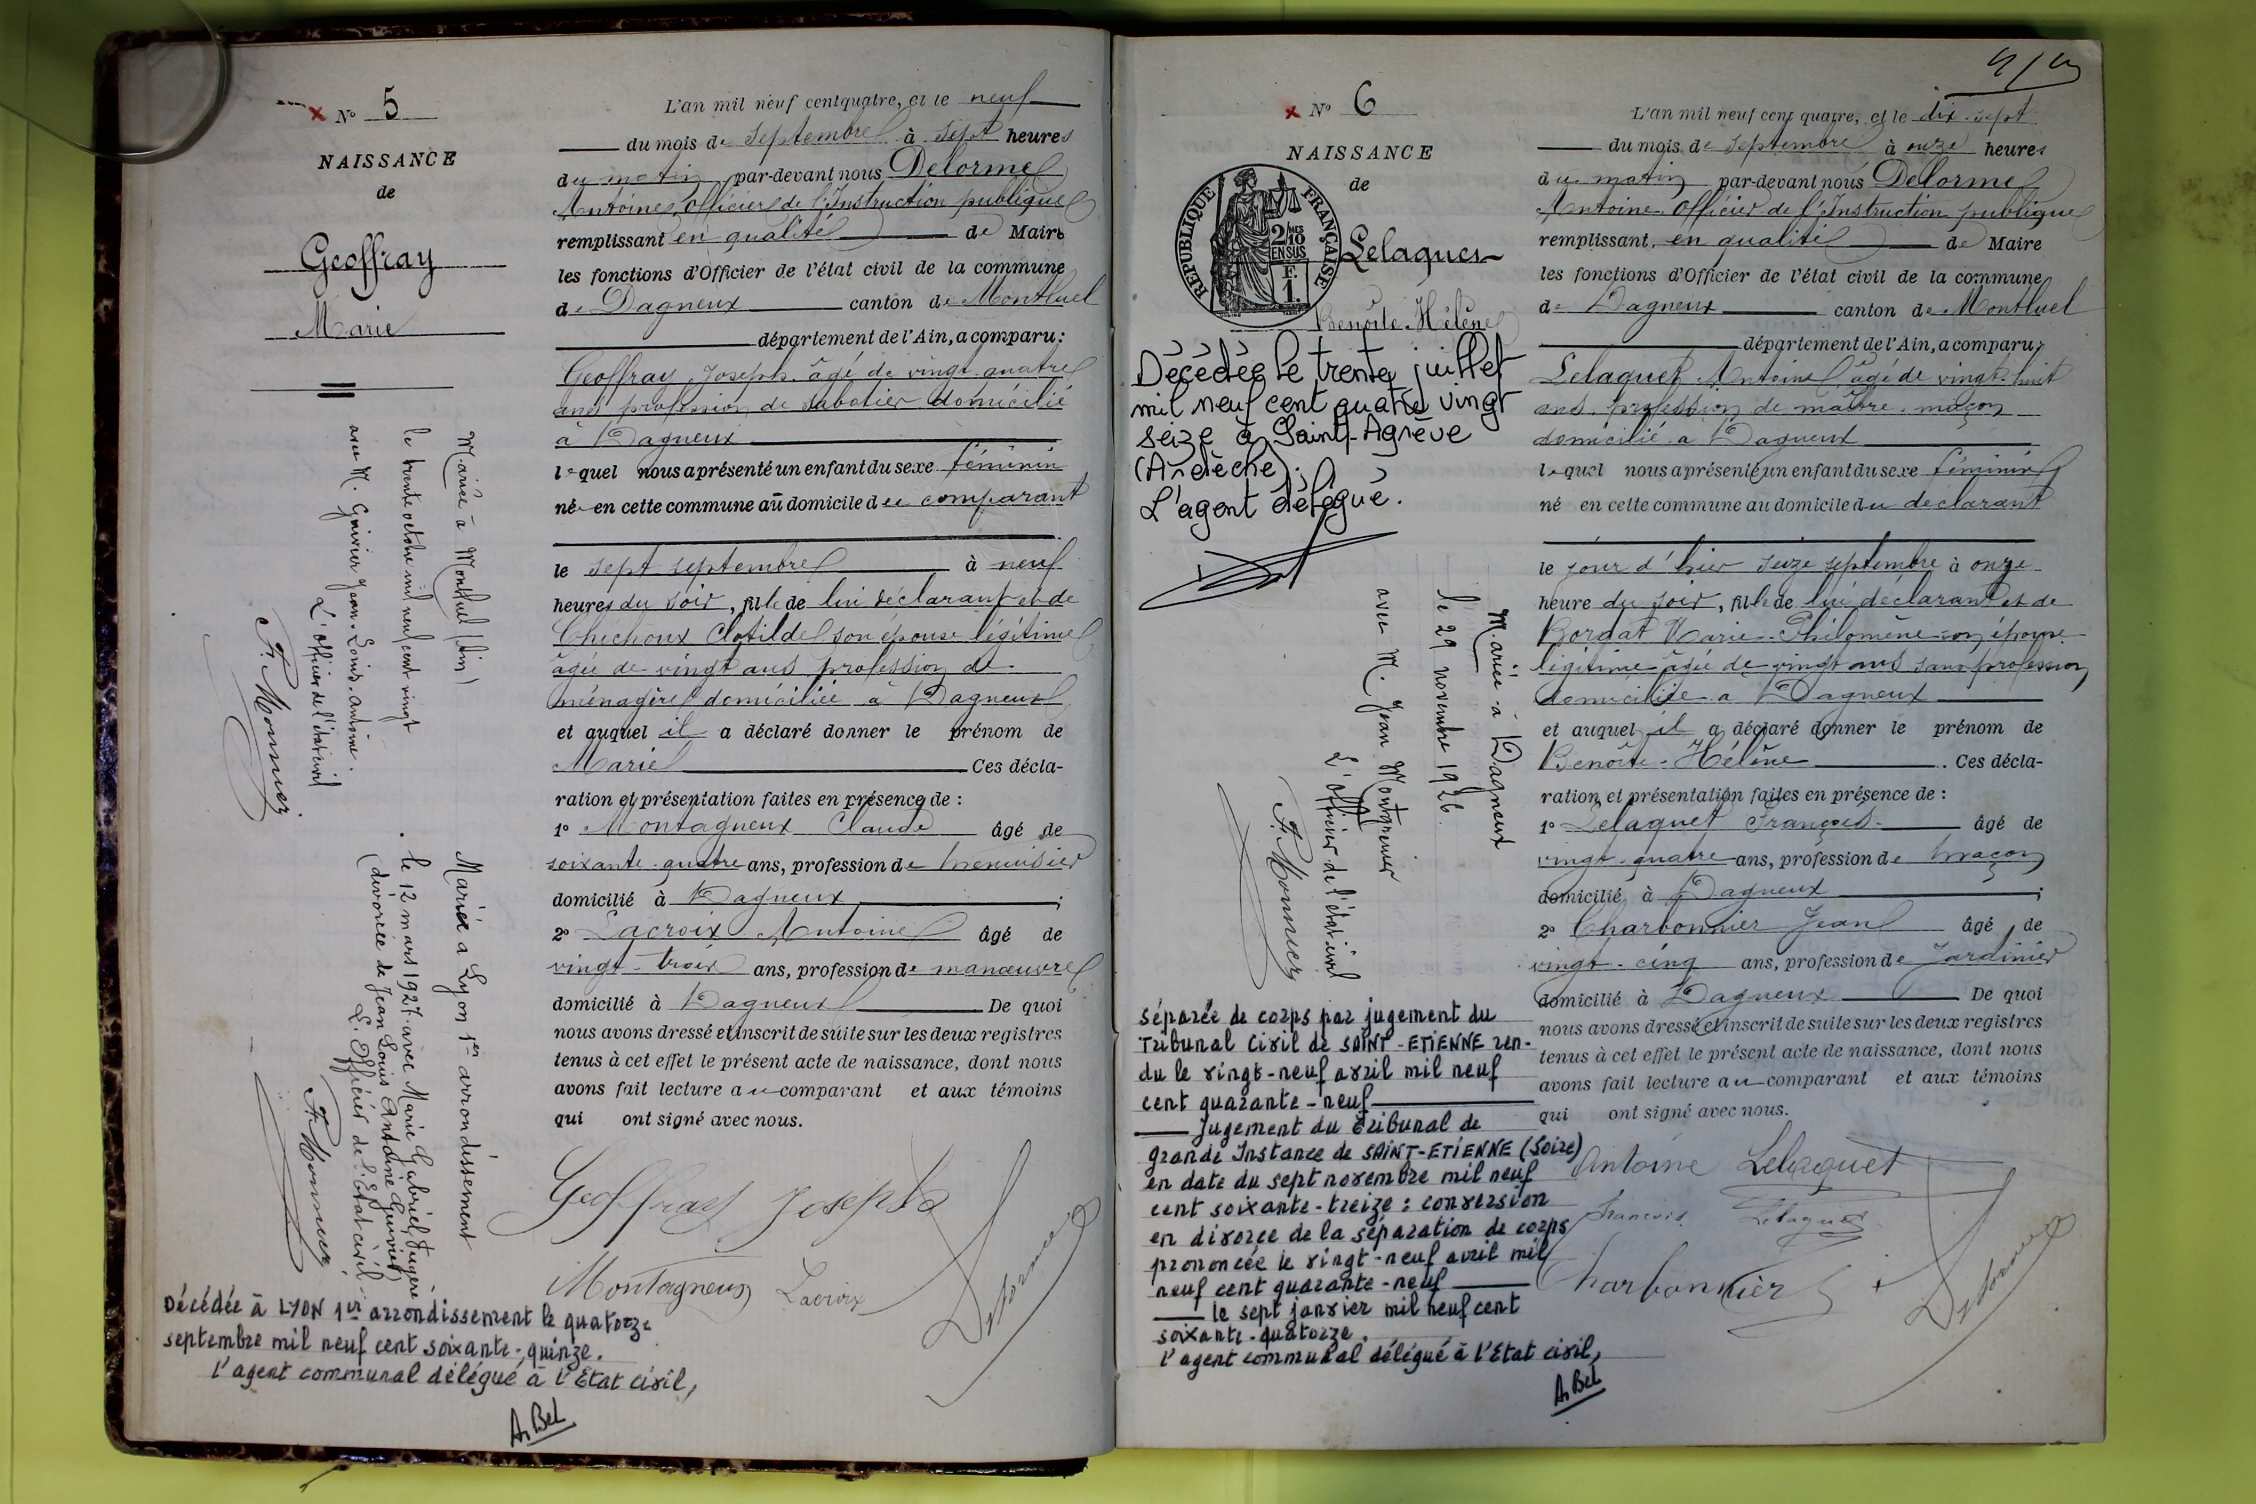 N° 5
NAISSANCE
de
Geoffray
Marie
Mariée à Montluel (Ain)
le trente octobre mil neuf cent vingt
avec M. Guivier Jean-Louis-Antoine.
L'officier de l'état civil
F. Monnier
Mariée à Lyon 1er arrondissement
le 12 mars 1927 avec Marie Gabriel Fugère
(divorcée de Jean Louis Antoine Guivier)
L'Officier de l'Etat civil
F. Monnier
Décédée à LYON 1er arrondissement le quatorze
septembre mil neuf cent soixante-quinze.
l'agent communal délégué à l'Etat civil,
A. Bel
L'an mil neuf cent quatre, et le neuf
du mois de septembre à sept heures
du matin par-devant nous Delorme
Antoine, officier de l'Instruction publique
remplissant en qualité de Maire
les fonctions d'Officier de l'état civil de la commune
de Dagneux canton de Montluel
département de l'Ain, a comparu :
Geoffray Joseph âgé de vingt-quatre
ans profession de sabotier domicilié
à Dagneux
lequel nous a présenté un enfant du sexe féminin
née en cette commune au domicile du comparant
le sept septembre à neuf
heures du soir, fille de lui déclarant et de
Chechoux Clotilde son épouse légitime
âgée de vingt ans profession de
ménagère domiciliée à Dagneux
et auquel il a déclaré donner le prénom de
Marie Ces décla-
ration et présentation faites en présence de :
1° Montagneux Claude âgé de
soixante-quatre ans, profession de menuisier
domicilié à Dagneux ;
2° Lacroix Antoine âgé de
vingt-trois ans, profession de manœuvre
domicilié à Dagneux De quoi
nous avons dressé et inscrit de suite sur les deux registres
tenus à cet effet le présent acte de naissance, dont nous
avons fait lecture au comparant et aux témoins
qui ont signé avec nous.
Geoffray Joseph
Montagneux Lacroix
Delorme
N° 6
NAISSANCE
de
RÉPUBLIQUE FRANÇAISE
2/10
EN SUS
F.
1.
Lelaquet
Benoîte-Hélène
Décédée le trente juillet
mil neuf cent quatre vingt
seize à Saint-Agrève
(Ardèche).
L'agent délégué.
Mariée à Dagneux
le 29 novembre 1926
avec M. Jean Montgrenier
L'officier de l'état civil
F. Monnier
Séparée de corps par jugement du
Tribunal Civil de SAINT-ETIENNE ren-
du le vingt-neuf avril mil neuf
cent quarante-neuf
Jugement du Tribunal de
grande Instance de SAINT-ETIENNE (Loire)
en date du sept novembre mil neuf
cent soixante-treize : conversion
en divorce de la séparation de corps
prononcée le vingt-neuf avril mil
neuf cent quarante-neuf
le sept janvier mil neuf cent
soixante-quatorze.
l'agent communal délégué à l'Etat civil,
A. Bel
L'an mil neuf cent quatre, et le dix-sept
du mois de septembre à onze heures
du matin par-devant nous Delorme
Antoine officier de l'Instruction publique
remplissant en qualité de Maire
les fonctions d'Officier de l'état civil de la commune
de Dagneux canton de Montluel
département de l'Ain, a comparu,
Lelaquet Antoine âgé de vingt-huit
ans profession de maître-maçon
domicilié à Dagneux
lequel nous a présenté un enfant du sexe féminin
né en cette commune au domicile du déclarant
le jour d'hier seize septembre à onze
heure du soir, fille de lui déclarant et de
Bordat Marie-Philomène son épouse
légitime âgée de vingt ans sans profession
domiciliée à Dagneux
et auquel il a déclaré donner le prénom de
Benoîte-Hélène. Ces décla-
ration et présentation faites en présence de :
1° Lelaquet François âgé de
vingt-quatre ans, profession de maçon
domicilié à Dagneux ;
2° Charbonnier Jean âgé de
vingt-cinq ans, profession de Jardinier
domicilié à Dagneux De quoi
nous avons dressé et inscrit de suite sur les deux registres
tenus à cet effet le présent acte de naissance, dont nous
avons fait lecture au comparant et aux témoins
qui ont signé avec nous.
Antoine Lelaquet
François Lelaquet
Charbonnier
Delorme